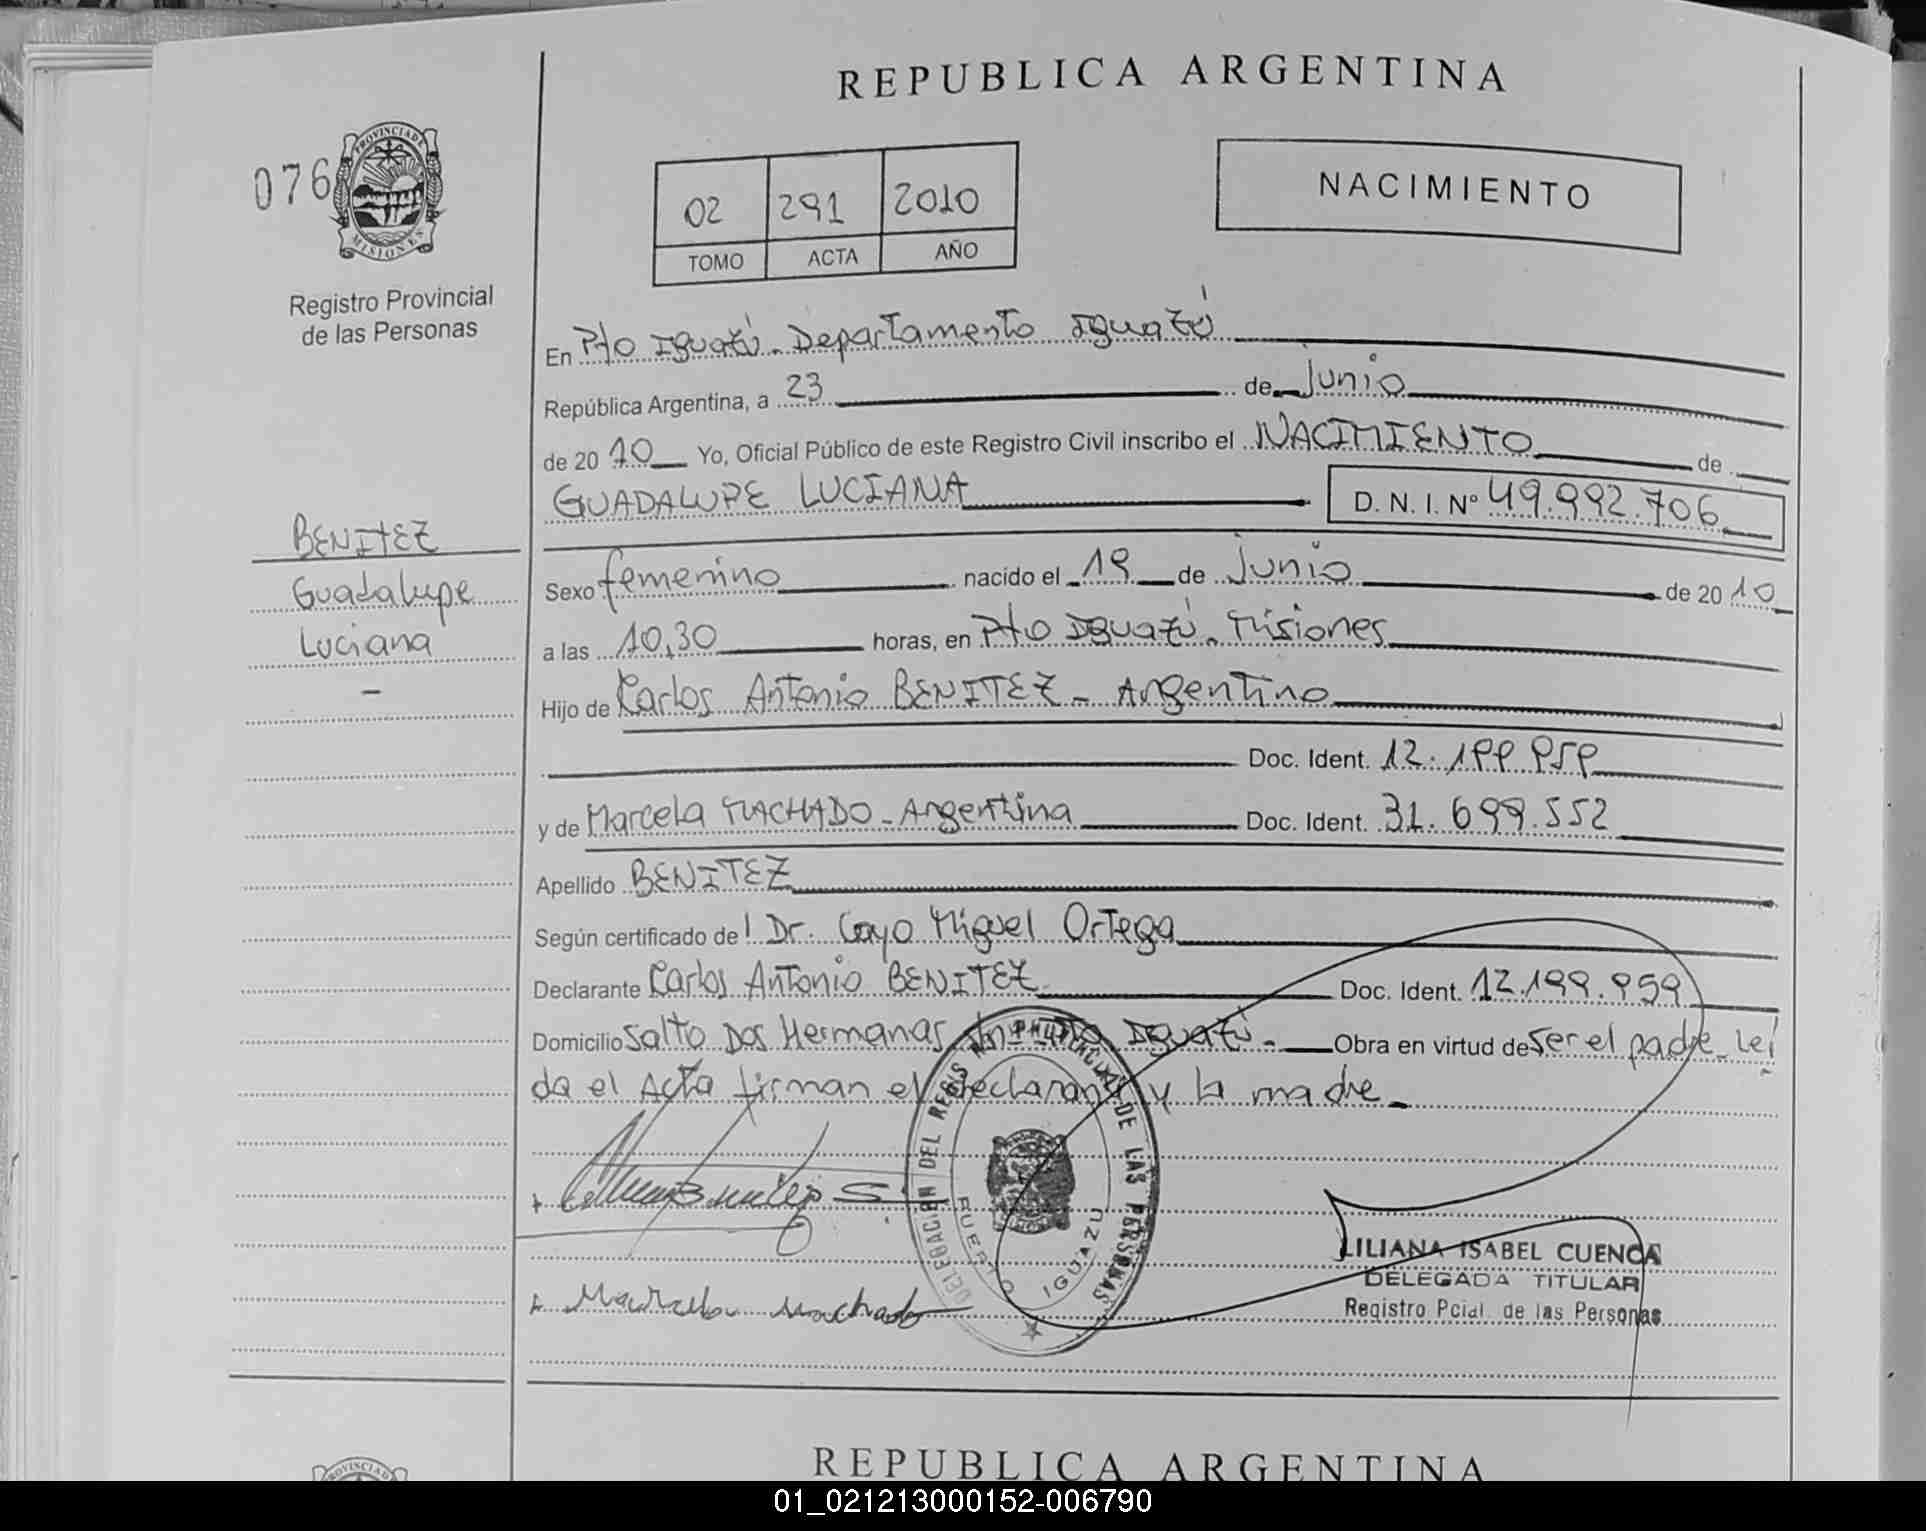 REPUBLICA ARGENTINA
076
PROVINCIA DE
MISIONES
Registro Provincial
de las Personas
02 291 2010
TOMO ACTA AÑO
NACIMIENTO
En Pto Iguazú. Departamento Iguazú
República Argentina, a 23 de junio
de 2010 Yo, Oficial Público de este Registro Civil inscribo el NACIMIENTO de
GUADALUPE LUCIANA D.N.I. Nº 49.992.706
BENITEZ
Guadalupe
Luciana
-
Sexo femenino nacido el 19 de junio de 2010
a las 10,30 horas, en Pto Iguazú. Misiones
Hijo de Carlos Antonio BENITEZ - Argentino
Doc. Ident. 12.199.959
y de Marcela MACHADO - Argentina Doc. Ident. 31.699.552
Apellido BENITEZ
Según certificado del Dr. Cayo Miguel Ortega
Declarante Carlos Antonio BENITEZ Doc. Ident. 12.199.959
Domicilio Salto Dos Hermanas Pto Iguazú - Obra en virtud de ser el padre - Lei
da el Acta firman el declarante y la madre -
DELEGACION DEL REGISTRO PROVINCIAL DE LAS PERSONAS
PUERTO IGUAZU
Marcela Machado
LILIANA ISABEL CUENCA
DELEGADA TITULAR
Registro Pcial. de las Personas
REPUBLICA ARGENTINA
PROVINCIA
01_021213000152-006790